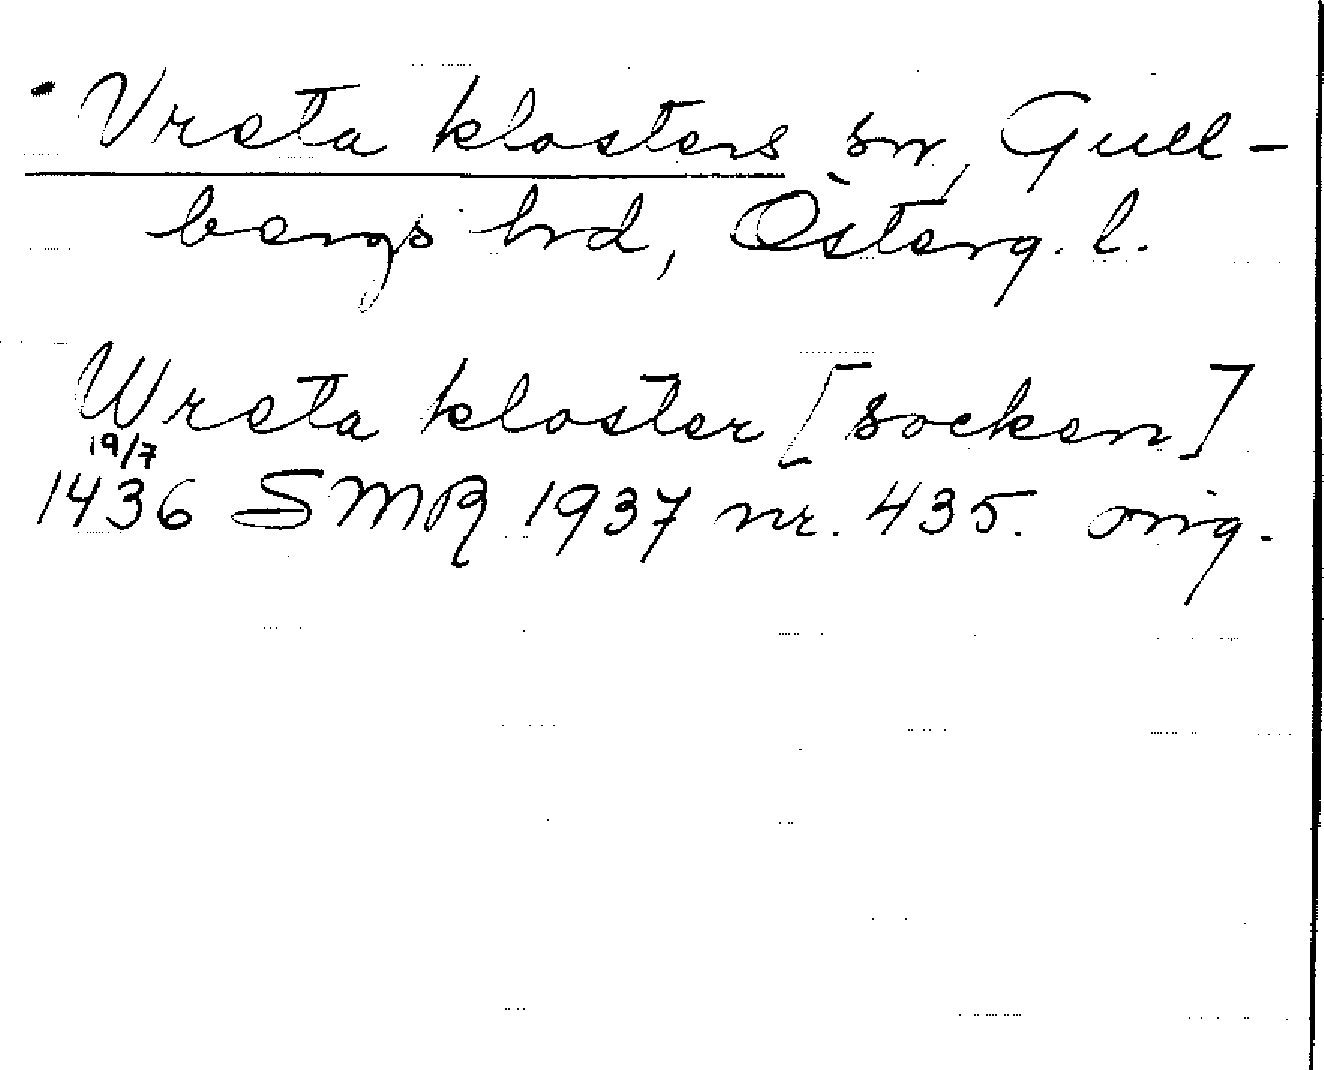 Vreta klosters sn, Gull-
bergs hrd, Österg. l.
Wreta kloster [socken]
19/7
1436 SMR 1937 nr. 435. orig.